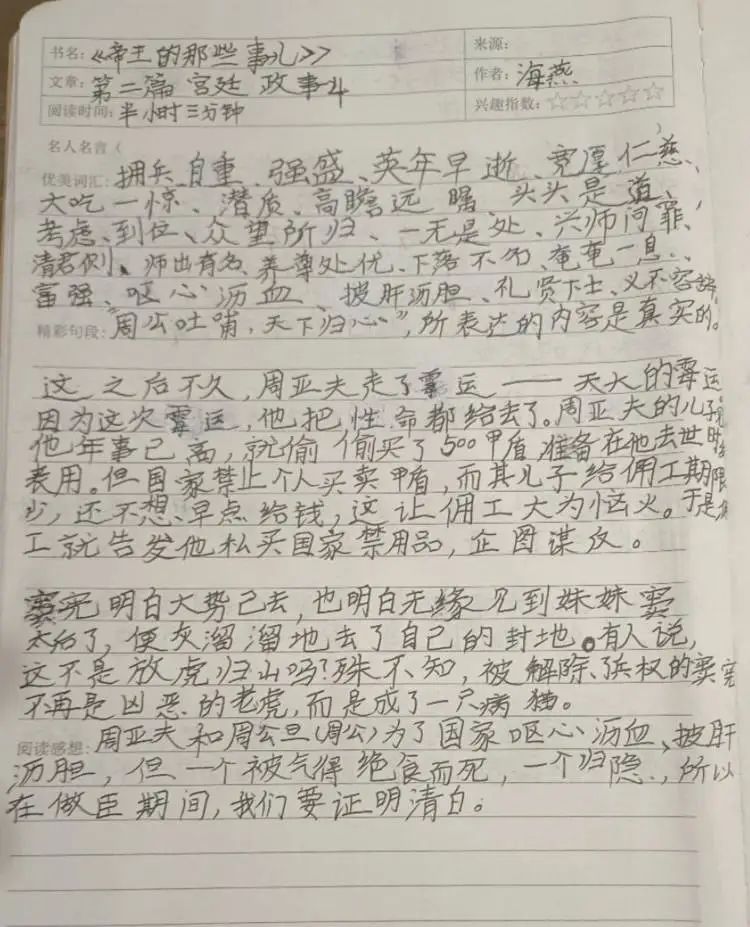 书名: 《帝王的那些事儿》 来源:
文章: 第二篇 宫廷 政事4 作者: 海燕
阅读时间: 半小时三分钟 兴趣指数: ☆☆☆☆☆
名人名言(
优美词汇: 拥兵自重、强盛、英年早逝、宽厚仁慈、
大吃一惊、潜质、高瞻远瞩、头头是道、
考虑、到位、众望所归、一无是处、兴师问罪、
清君侧、师出有名、养尊处优、下落不明、奄奄一息、
富强、呕心沥血、披肝沥胆、礼贤下士、义不容辞
精彩句段: "周公吐哺,天下归心",所表达的内容是真实的。
这之后不久,周亚夫走了霉运——天大的霉运
因为这次霉运,他把性命都给去了。周亚夫的儿子见
他年事已高,就偷偷买了500甲盾准备在他去世时
表用。但国家禁止个人买卖甲盾,而其儿子给佣工期限
少,还不想早点给钱,这让佣工大为恼火。于是佣
工就告发他私买国家禁用品,企图谋反。
窦宪明白大势已去,也明白无缘见到妹妹窦
太后了,便灰溜溜地去了自己的封地。有人说,
这不是放虎归山吗?殊不知,被解除兵权的窦宪
不再是凶恶的老虎,而是成了一只病猫。
阅读感想: 周亚夫和周公旦(周公)为了国家呕心沥血、披肝
沥胆,但一个被气得绝食而死,一个归隐,所以
在做臣期间,我们要证明清白。